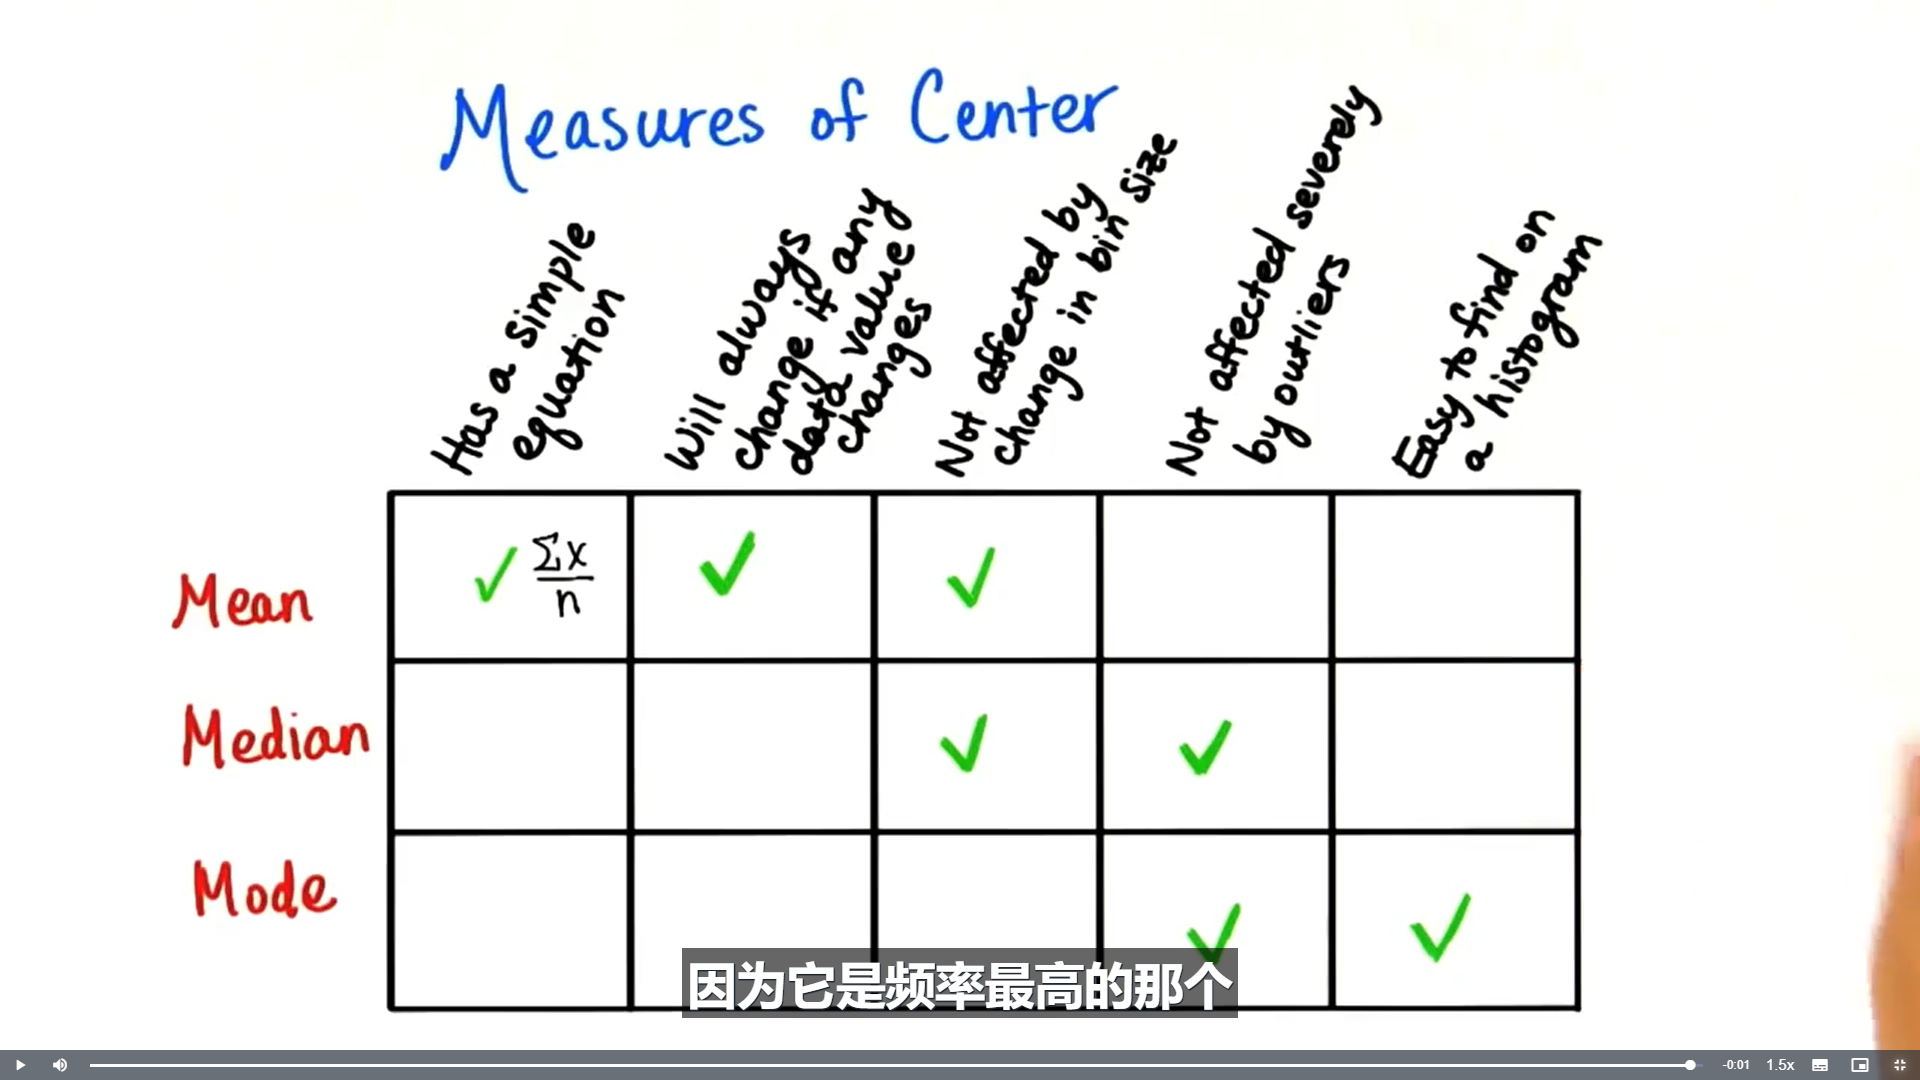 Measures of Center
Has a simple
equation
Will always
change if any
data value
changes
Not affected by
change in bin size
Not affected severely
by outliers
Easy to find on
a histogram
Mean
✓ Σx
n
✓
✓
Median
✓
✓
Mode
✓
✓
因为它是频率最高的那个
-0:01
1.5x